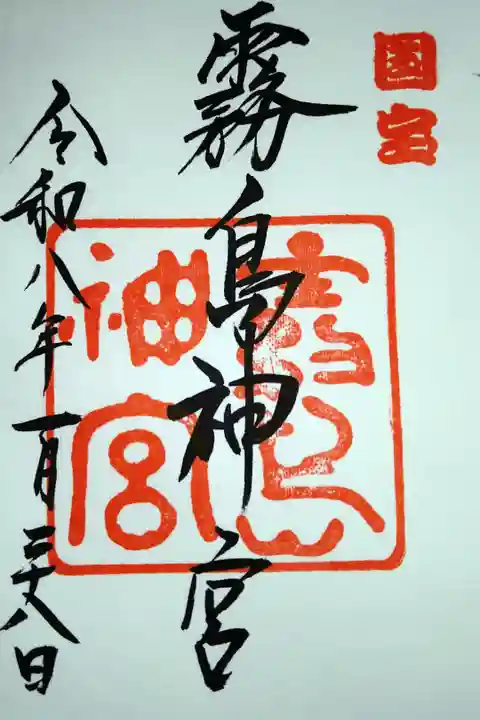 国宝
霧島神宮
霧島神宮
令和八年一月二十八日